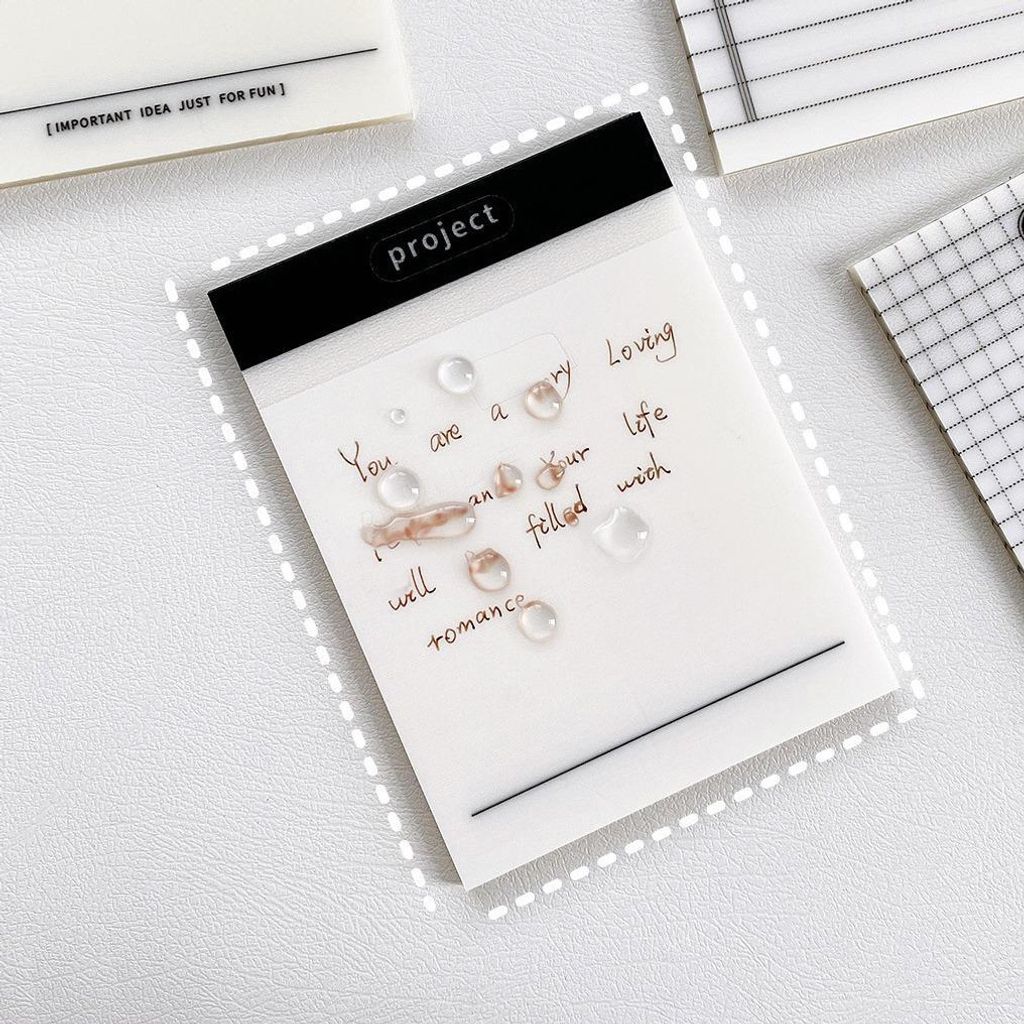 [ IMPORTANT IDEA JUST FOR FUN ]
project
You are a Loving
Your life
will filled with
romance